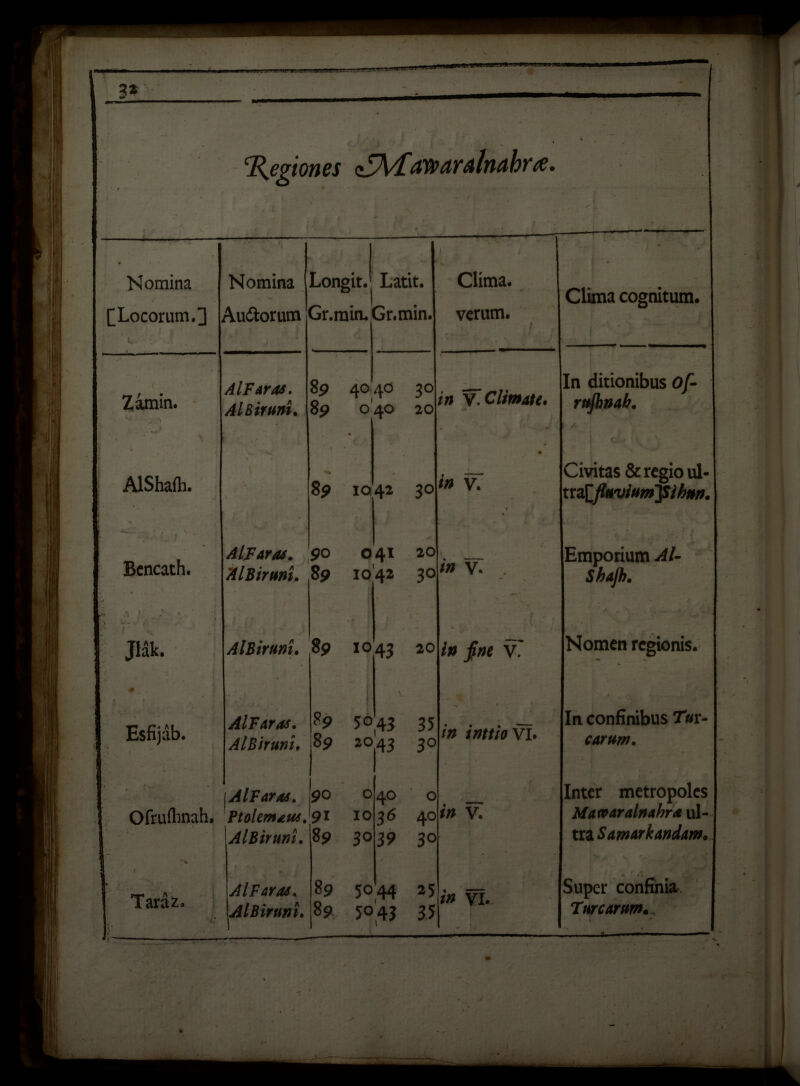 32
Regiones Mawaralnahræ.
Nomina Nomina Longit. Latit. Clima. Clima cognitum.
[Locorum.] Auctorum Gr.min. Gr.min. verum.
Zámin. AlFaras. 89 40 40 30 in V. Climate. In ditionibus Of-
AlBiruni. 89 0 40 20 rushnah.
AlShash. 89 10 42 30 in V. Civitas & regio ul-
tra[fluvium]Sihun.
Bencath. AlFaras. 90 0 41 20 in V. Emporium Al-
AlBiruni. 89 10 42 30 Shash.
Jlâk. AlBiruni. 89 10 43 20 in fine V. Nomen regionis.
Esfijâb. AlFaras. 89 50 43 35 in inttio VI. In confinibus Tur-
AlBiruni. 89 20 43 30 carum.
Ofrushnah. AlFaras. 90 0 40 0 in V. Inter metropoles
Ptolemæus. 91 10 36 40 Mawaralnahræ ul-
AlBiruni. 89 30 39 30 tra Samarkandam.
Tarâz. AlFaras. 89 50 44 25 in VI. Super confinia
AlBiruni. 89 50 43 35 Turcarum.